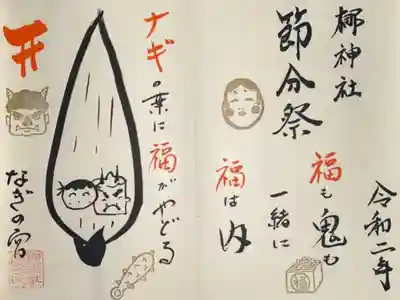 梛神社
節分祭
令和二年
福も鬼も
一緒に
福は内
ナギの葉に福がやどる
なぎの宿